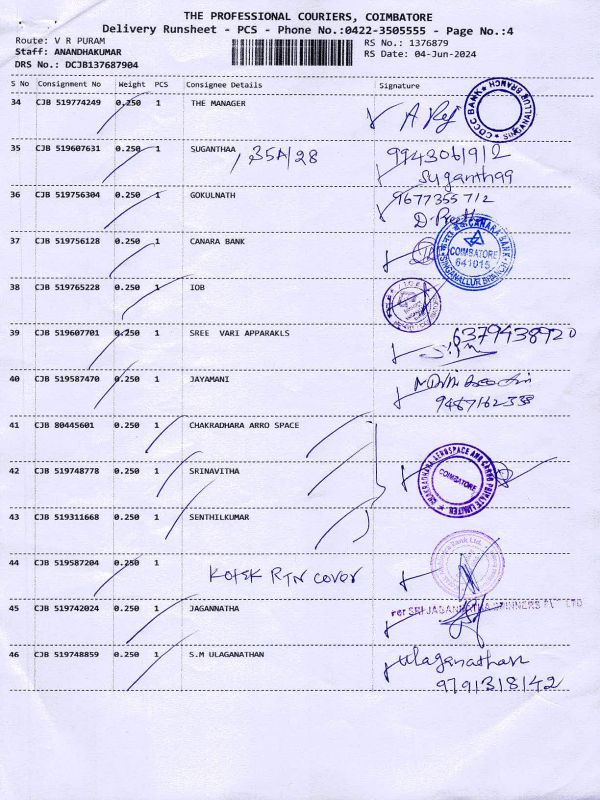 THE PROFESSIONAL COURIERS, COIMBATORE
Delivery Runsheet - PCS - Phone No.:0422-3505555 - Page No.:4
Route: V R PURAM
RS No.: 1376879
Staff: ANANDHAKUMAR
RS Date: 04-Jun-2024
DRS No.: DCJB137687904
S No Consignment No Weight PCS Consignee Details Signature
34 CJB 519774249 0.250 1 THE MANAGER
CDCC BANK SINGANALLUR BRANCH
35 CJB 519607631 0.250 1 SUGANTHAA , 35A/28 9943061912
Suganthaa
36 CJB 519756304 0.250 1 GOKULNATH 9677355712
37 CJB 519756128 0.250 1 CANARA BANK
CANARA BANK COIMBATORE 641015 SINGANALLUR BRANCH
38 CJB 519765228 0.250 1 IOB
39 CJB 519607701 0.250 1 SREE VARI APPARAKLS 6379438920
40 CJB 519587470 0.250 1 JAYAMANI
9487162338
41 CJB 80445601 0.250 1 CHAKRADHARA ARRO SPACE
42 CJB 519748778 0.250 1 SRINAVITHA
CHAKRADHARA AEROSPACE AND CARGO PRIVATE LIMITED COIMBATORE
43 CJB 519311668 0.250 1 SENTHILKUMAR
44 CJB 519587204 0.250 1 Kotak RTN cover
45 CJB 519742024 0.250 1 JAGANNATHA
For SRI JAGANNATHA SPINNERS PVT LTD
46 CJB 519748859 0.250 1 S.M ULAGANATHAN
Ulaganathan
9791318142